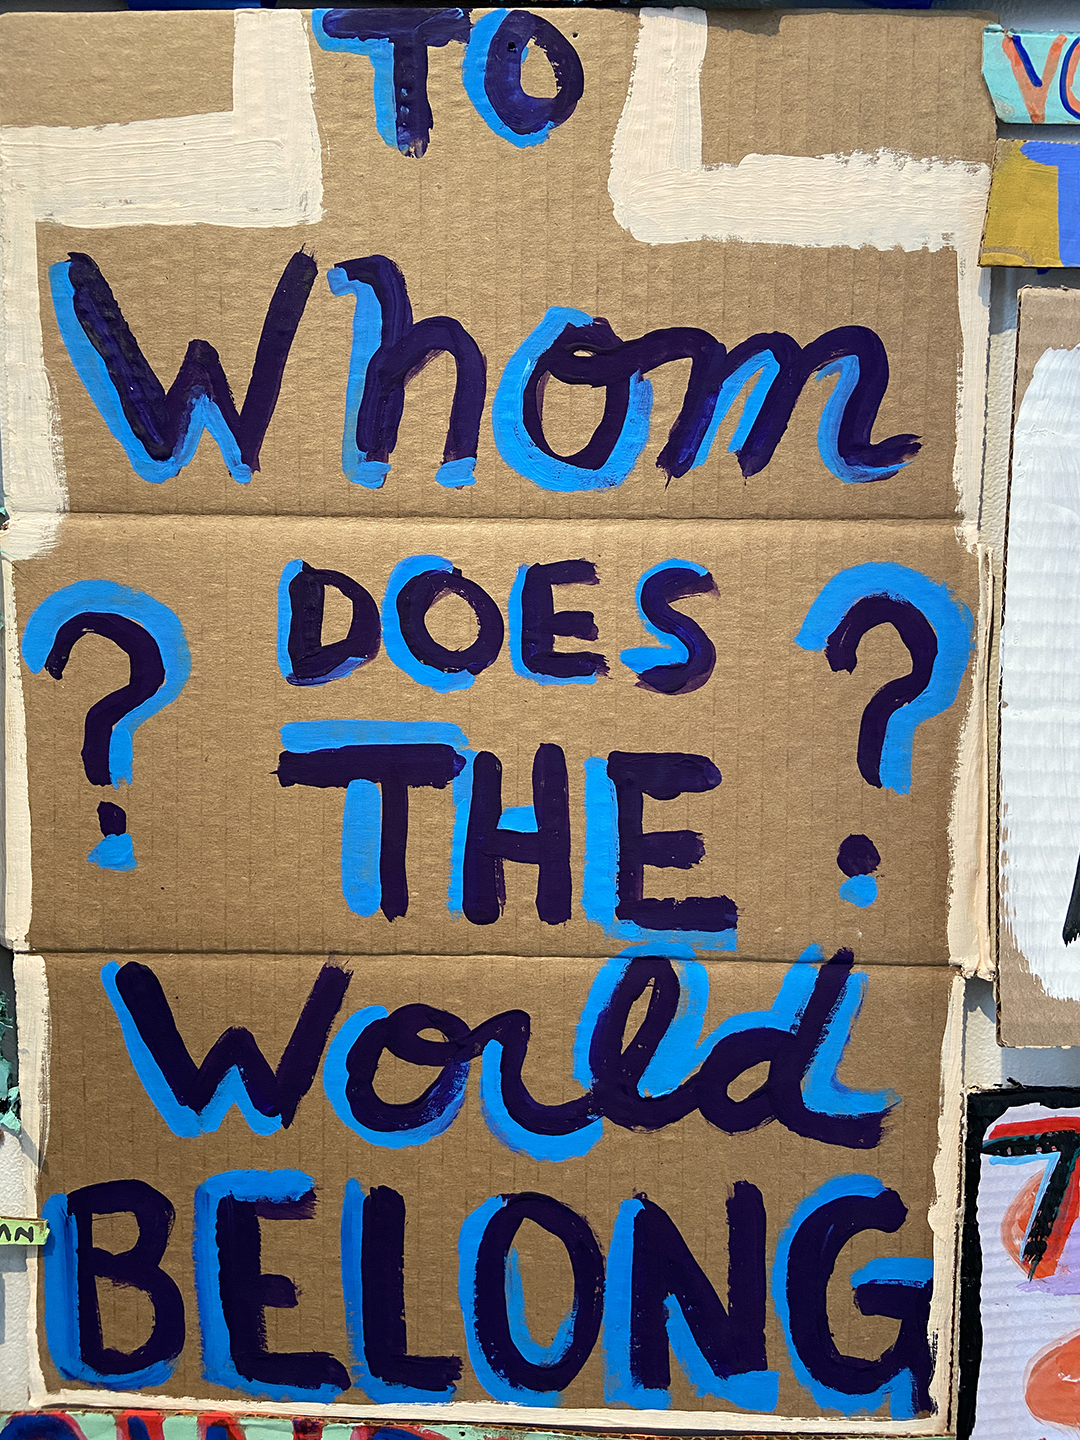 TO
Whom
DOES
? THE ?
World
BELONG